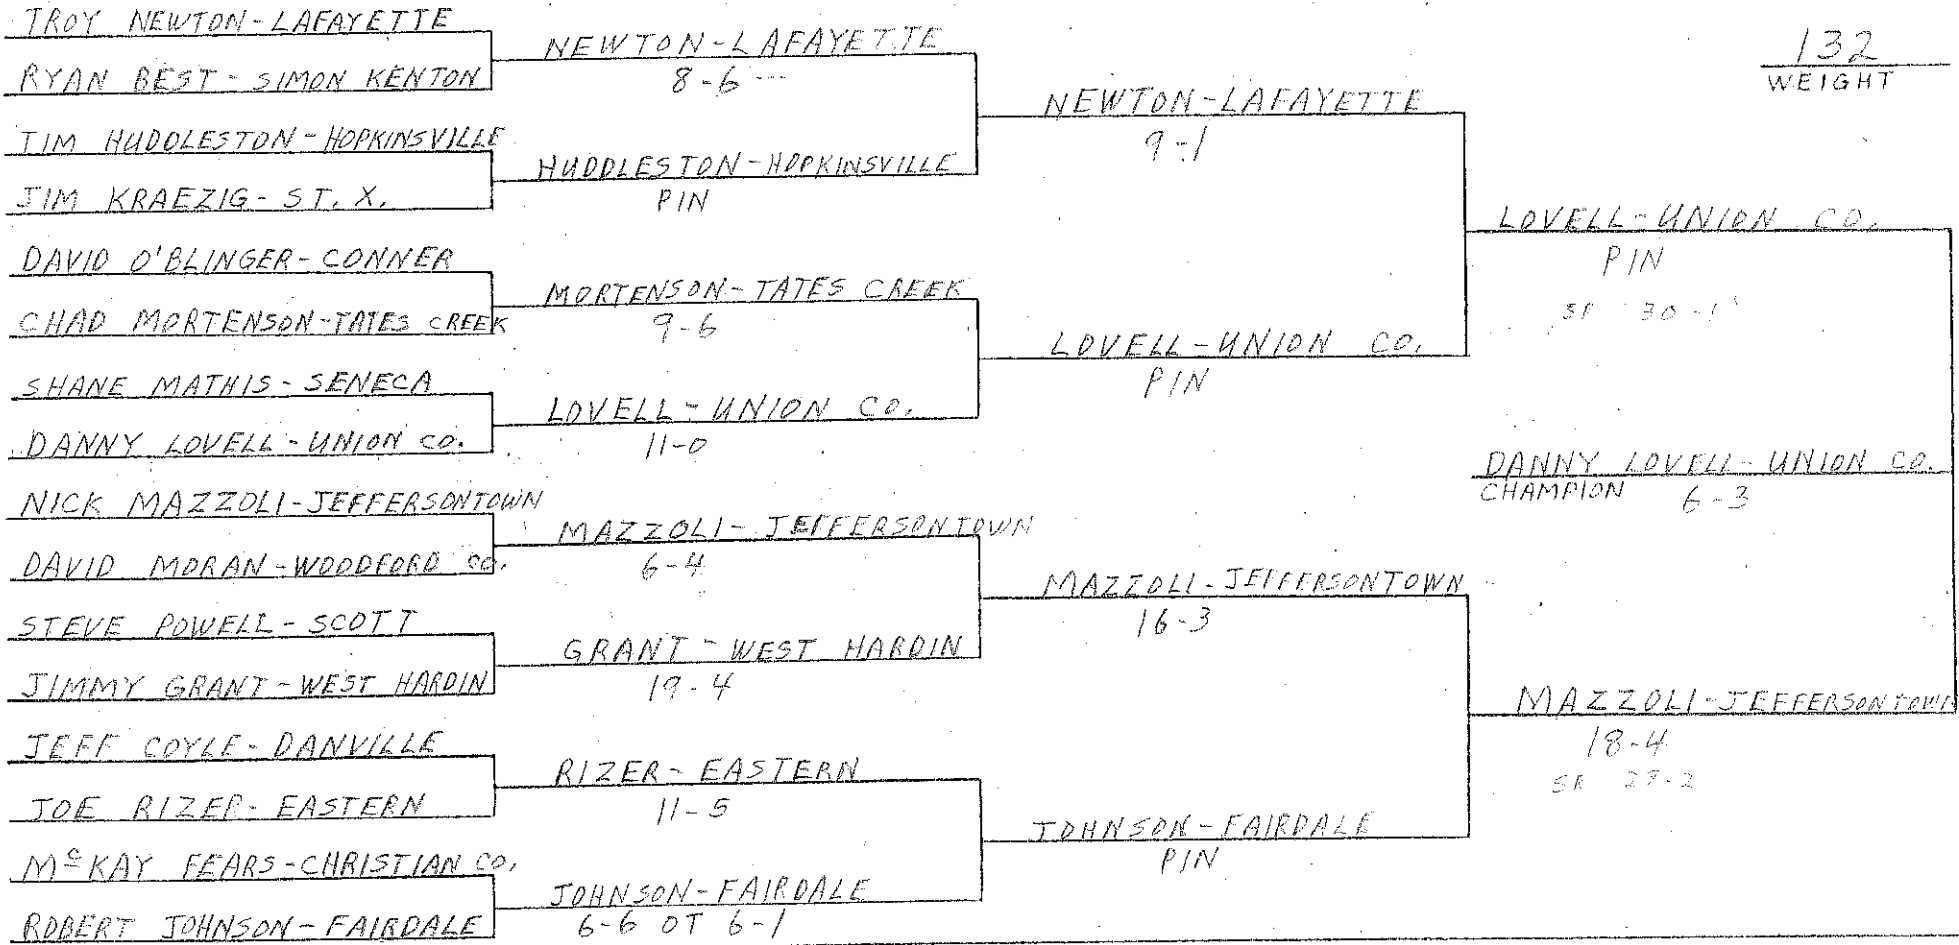 132
WEIGHT
TROY NEWTON-LAFAYETTE
RYAN BEST-SIMON KENTON
TIM HUDDLESTON-HOPKINSVILLE
JIM KRAEZIG-ST. X.
DAVID O'BLINGER-CONNER
CHAD MORTENSON-TATES CREEK
SHANE MATHIS-SENECA
DANNY LOVELL-UNION CO.
NICK MAZZOLI-JEFFERSONTOWN
DAVID MORAN-WOODFORD CO.
STEVE POWELL-SCOTT
JIMMY GRANT-WEST HARDIN
JEFF COYLE-DANVILLE
JOE RIZER-EASTERN
McKAY FEARS-CHRISTIAN CO.
ROBERT JOHNSON-FAIRDALE
NEWTON-LAFAYETTE
8-6
HUDDLESTON-HOPKINSVILLE
PIN
MORTENSON-TATES CREEK
9-6
LOVELL-UNION CO.
11-0
MAZZOLI-JEFFERSONTOWN
6-4
GRANT-WEST HARDIN
19-4
RIZER-EASTERN
11-5
JOHNSON-FAIRDALE
6-6 OT 6-1
NEWTON-LAFAYETTE
9-1
LOVELL-UNION CO.
PIN
MAZZOLI-JEFFERSONTOWN
16-3
JOHNSON-FAIRDALE
PIN
LOVELL-UNION CO.
PIN
30-1
MAZZOLI-JEFFERSONTOWN
18-4
DANNY LOVELL-UNION CO.
CHAMPION 6-3